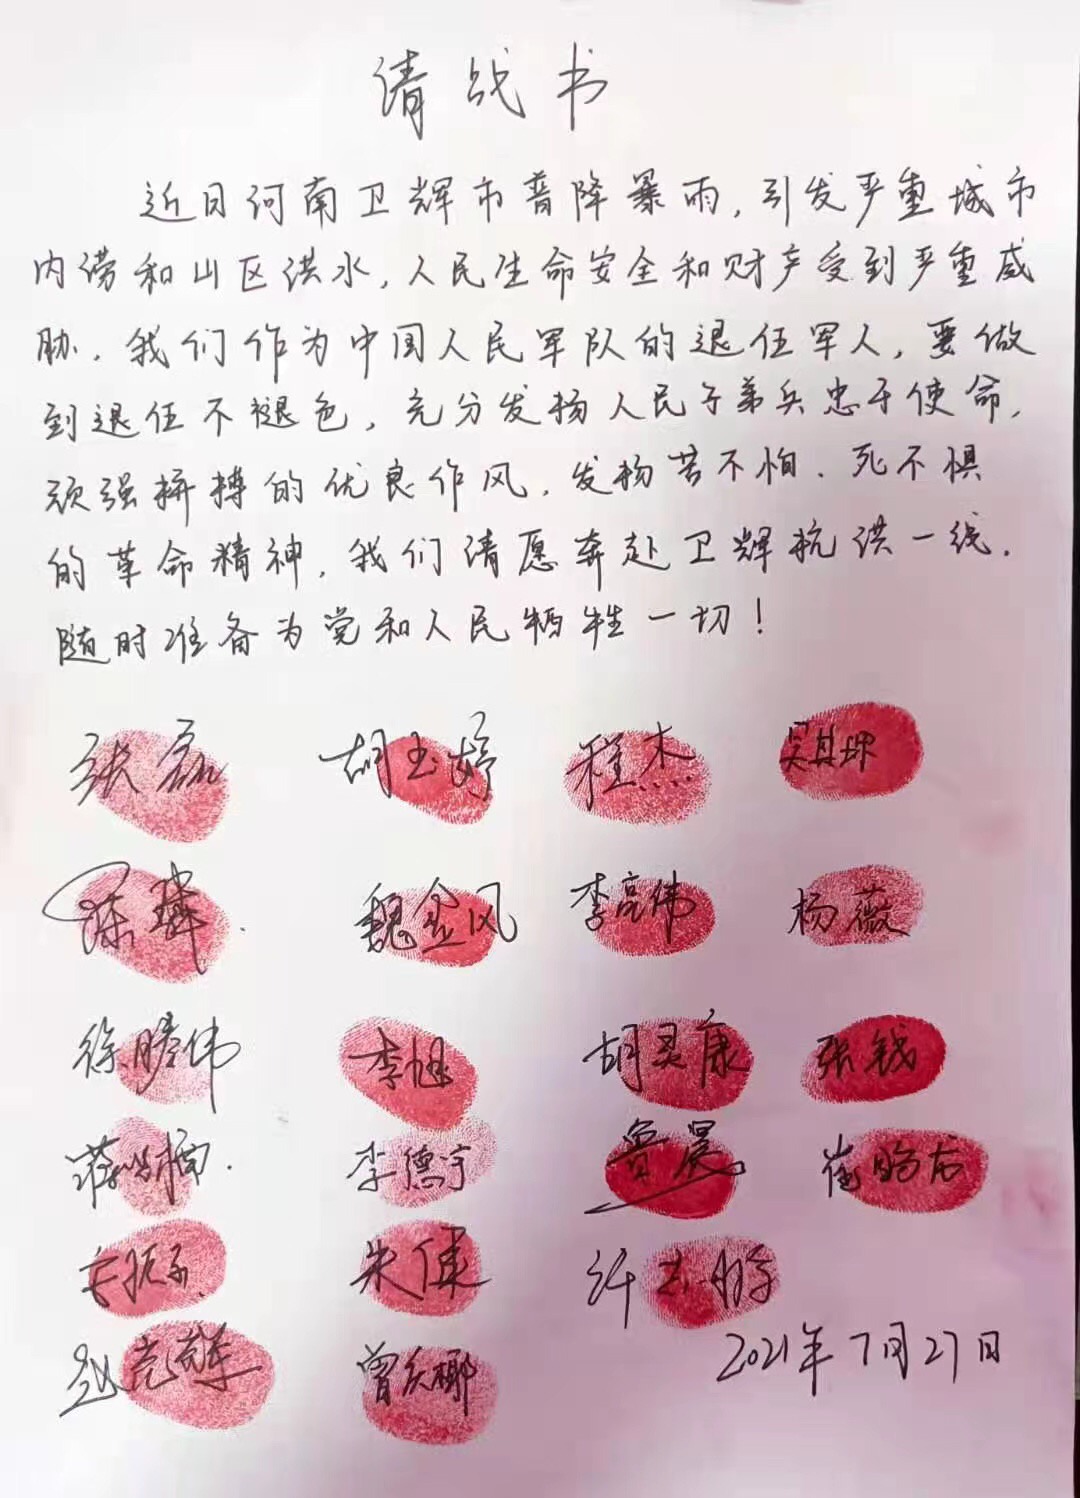 请战书
近日河南卫辉市普降暴雨,引发严重城市
内涝和山区洪水,人民生命安全和财产受到严重威
胁.我们作为中国人民军队的退伍军人,要做
到退伍不褪色,充分发扬人民子弟兵忠于使命,
顽强拼搏的优良作风,发扬苦不怕、死不惧
的革命精神,我们请愿奔赴卫辉抗洪一线.
随时准备为党和人民牺牲一切!
张磊 胡玉婷 程杰 吴其坤
陈璘 魏金风 李亮伟 杨薇
徐 伟 李旭 胡灵康 张钱
蒋 楠 李德宇 鲁晨 崔 龙
朱倩 许
赵 曾 椰
2021年7月27日